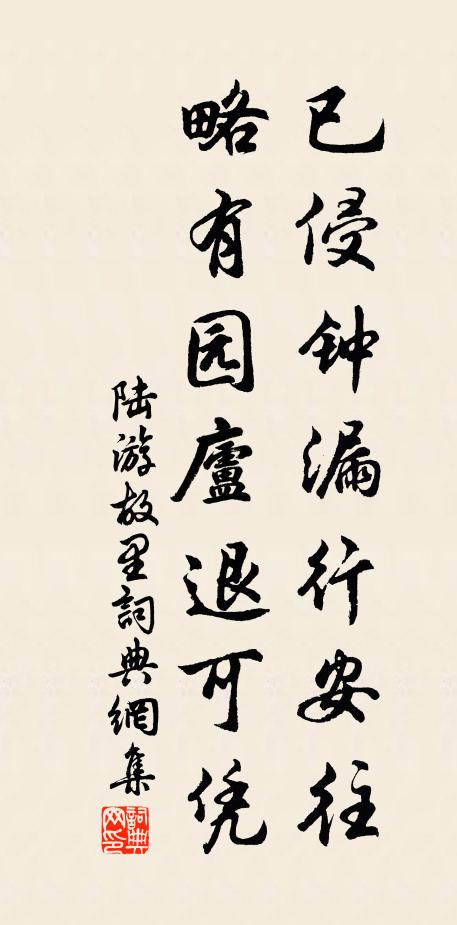 已侵钟漏行安往
略有园廬退可凭
陆游故里詞典網集
詞典网印